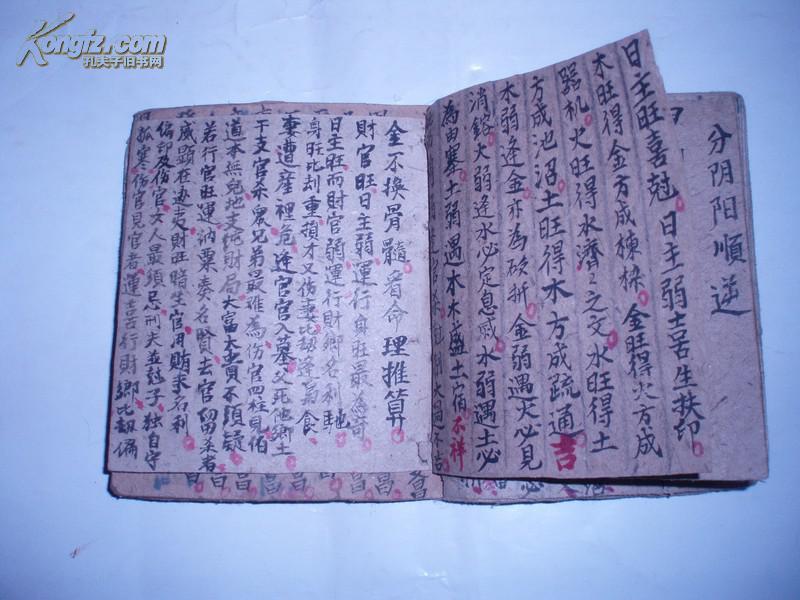 Kongfz.com
孔夫子旧书网
分阴阳順逆
日主旺喜尅 日主弱喜生扶印
木旺得金方成棟樑 金旺得火方成
器机 火旺得水濟之文 水旺得土
方成池沼 土旺得木方成疏通 吉
木弱逢金亦為砍折 金弱遇火必見
消鎔 火弱逢水必定息威 水弱遇土必
為由塞 土弱遇木木盛土宿 不祥
金不換骨髓看命理推算
財官旺日主弱運行身旺最為奇
日主旺而財官弱運行財鄉名利馳
身旺比刦重損才又傷妻比刼逢梟食
妻遭産裡危 逢官官入墓父死他鄉土
干支官杀震兄弟最难為 伤官四柱見伯
道本無兒 地支純財局大富大貴不須疑
若行官旺運訥粟奏在賢 去官留杀者
威顯在边走 財旺暗生官用賄求名利
偏印及伤官女人最須忌 刑夫並尅子独自守
孤寒 伤官見官者運喜行財鄉 比刼偏